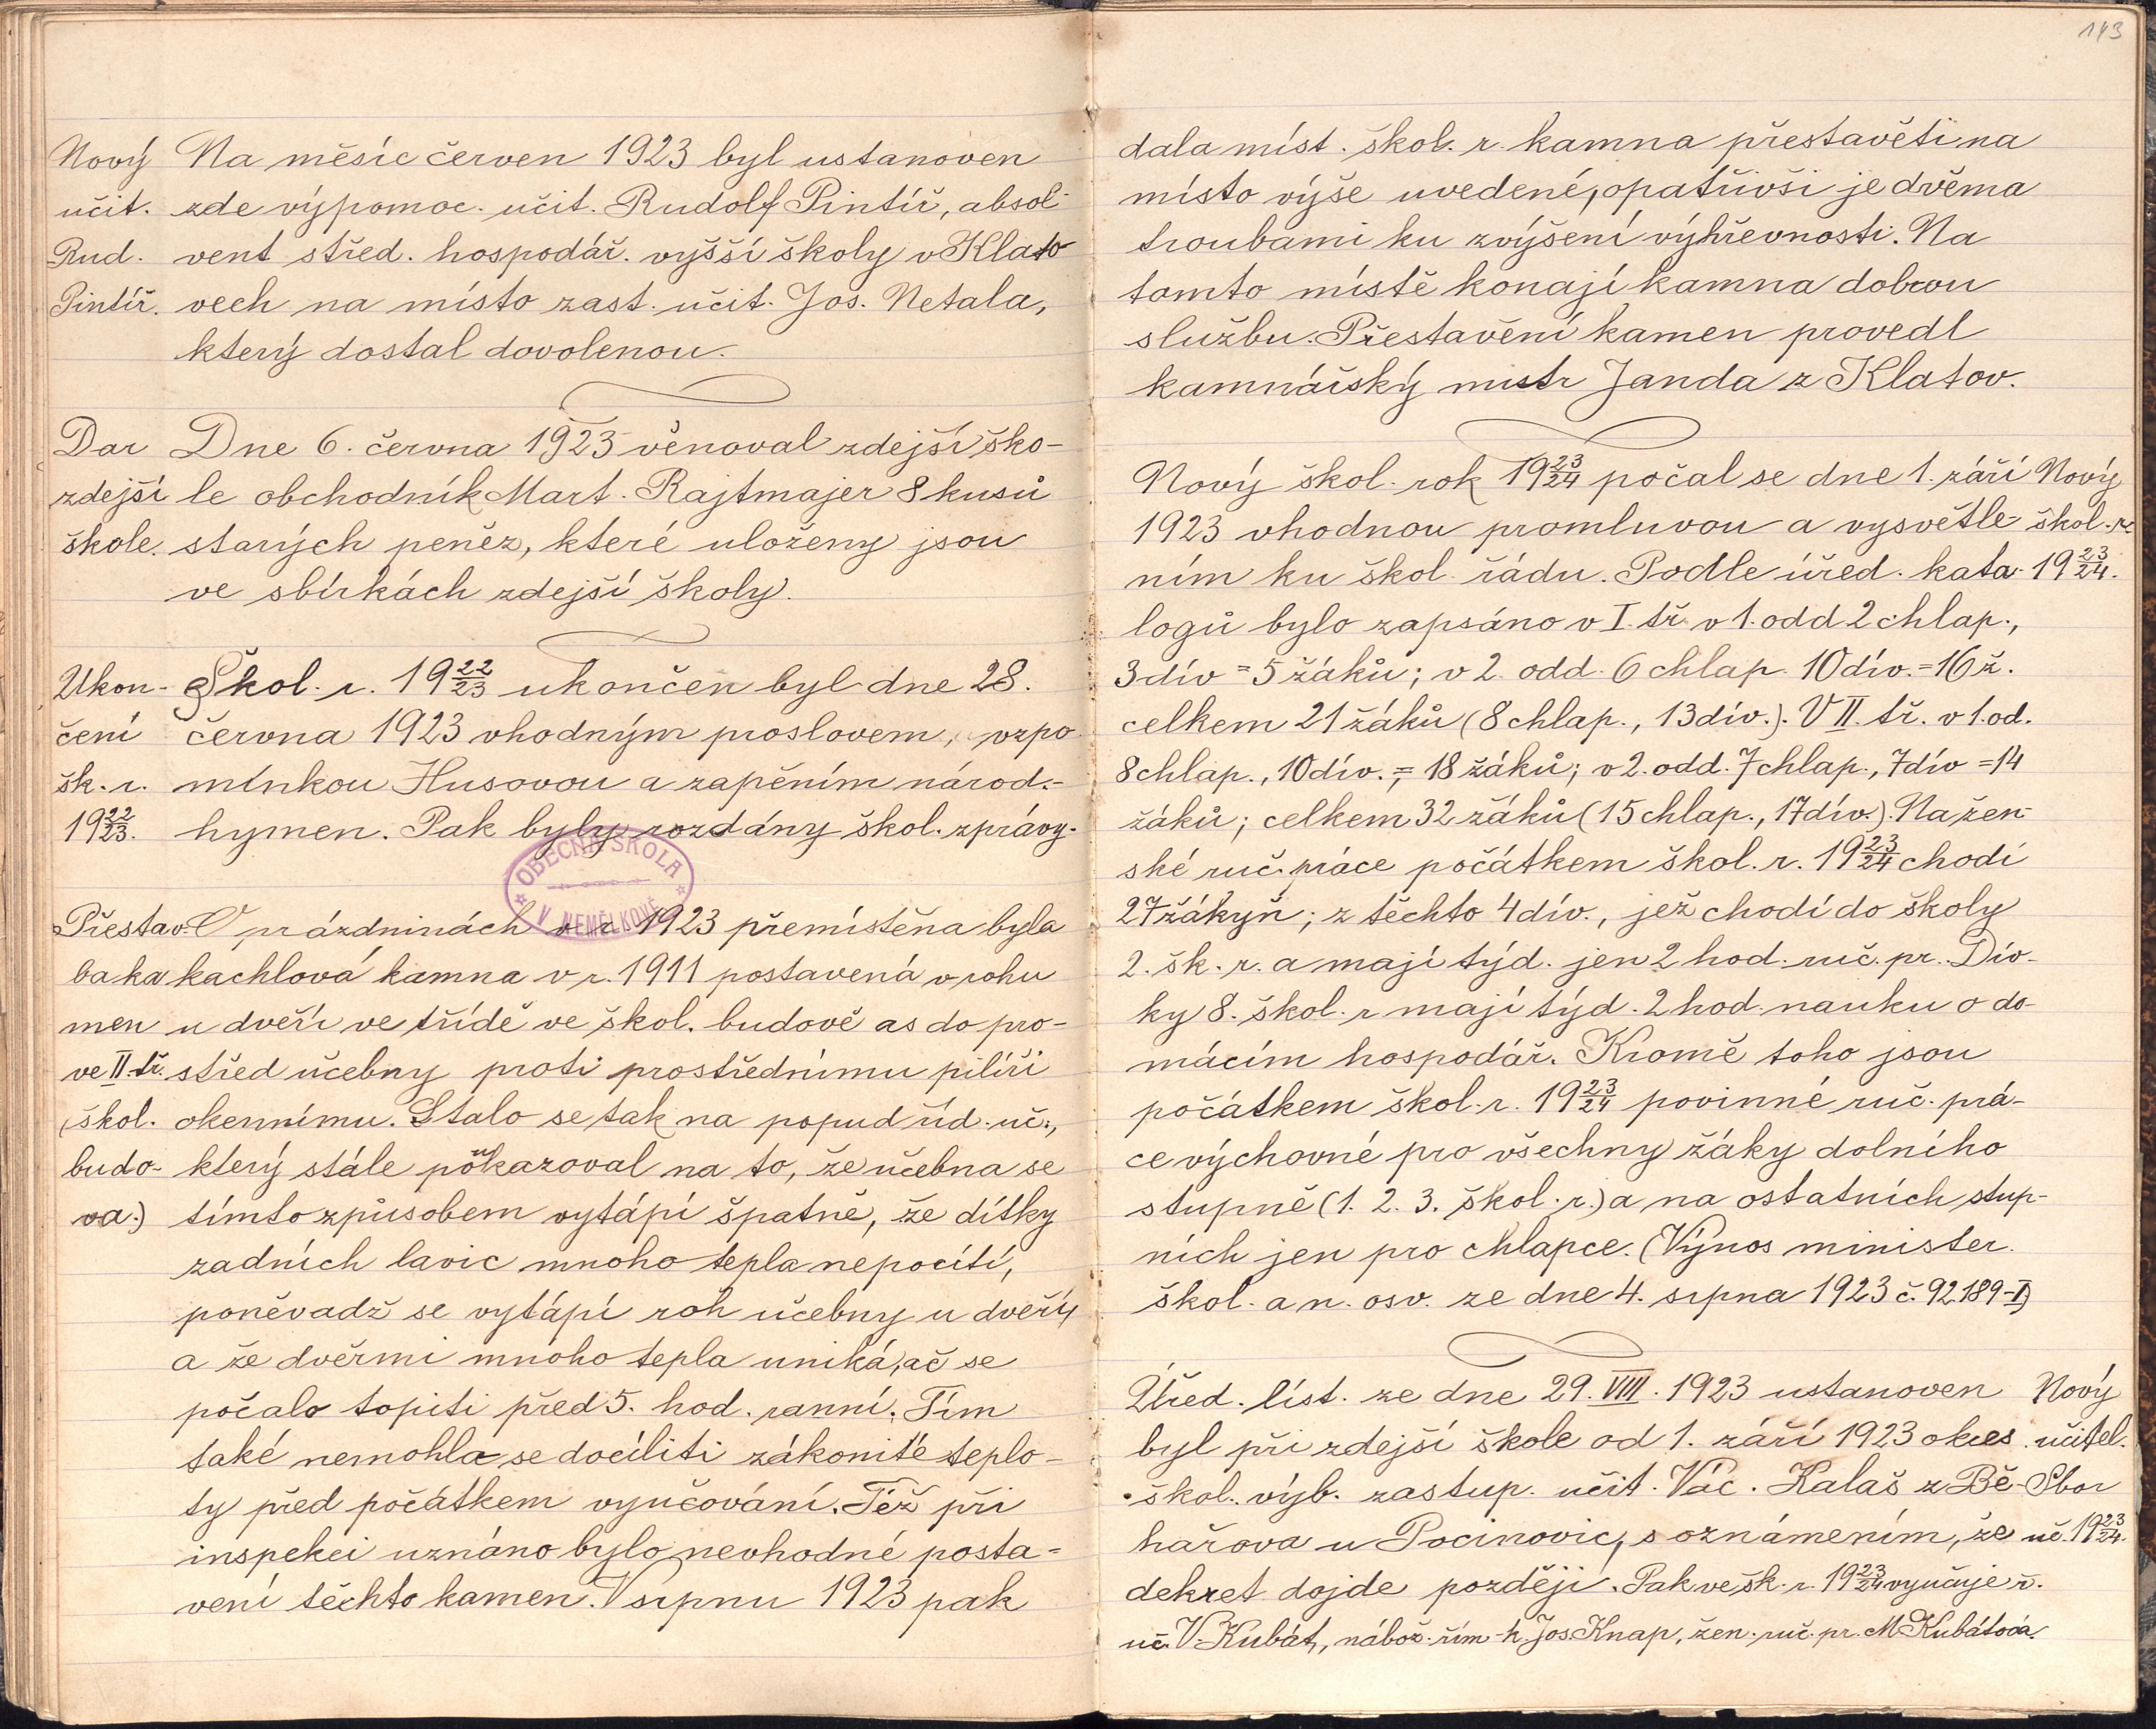 143
Nový Na měsíc červen 1923 byl ustanoven
učit. zde výpomoc. učit. Rudolf Pintíř, absol-
Rud. vent střed. hospodář. vyšší školy v Klato
Pintíř. vech na místo zast. učit. Jos. Netala,
který dostal dovolenou.
Dar Dne 6. června 1923 věnoval zdejší ško-
zdejší le obchodník Mart. Rajtmajer 8 kusů
škole. starých peněz, které uloženy jsou
ve sbírkách zdejší školy.
Ukon- Škol. r. 19 22/23 ukončen byl dne 28.
čení června 1923 vhodným proslovem, vzpo
šk. r. mínkou Husovou a zapěním národ.-
19 22/23. hymen. Pak byly rozdány škol. zprávy.
OBECNÁ ŠKOLA
V NEMĚLKOVĚ
Přestav. O prázdninách v r. 1923 přemístěna byla
ba ka kachlová kamna v r. 1911 postavená v rohu
men u dveří ve třídě ve škol. budově as do pro-
ve II. tř. střed učebny proti prostřednímu pilíři
(škol. okennímu. Stalo se tak na popud říd. uč.,
budo- který stále poukazoval na to, že učebna se
va.) tímto způsobem vytápí špatně, že dítky
zadních lavic mnoho tepla nepocítí,
poněvadž se vytápí roh učebny u dveří,
a že dveřmi mnoho tepla uniká, ač se
počalo topiti před 5. hod. ranní. Tím
také nemohla se docíliti zákonité teplo-
ty před počátkem vyučování. Též při
inspekci uznáno bylo nevhodné posta-
vení těchto kamen. V srpnu 1923 pak
dala míst. škol. r. kamna přestavěti na
místo výše uvedené, opatřivši je dvěma
troubami ku zvýšení výhřevnosti. Na
tomto místě konají kamna dobrou
službu. Přestavění kamen provedl
kamnářský mistr Janda z Klatov.
Nový škol. rok 19 23/24 počal se dne 1. září Nový
1923 vhodnou promluvou a vysvětle- škol. r.
ním ku škol. řádu. Podle úřed. kata- 19 23/24.
logů bylo zapsáno v I. tř. v 1. odd 2 chlap.,
3 dív = 5 žáků; v 2. odd. 6 chlap. 10 dív. = 16 ž.
celkem 21 žáků (8 chlap., 13 dív.). V II. tř. v 1. od.
8 chlap., 10 dív., = 18 žáků; v 2. odd. 7 chlap., 7 dív = 14
žáků; celkem 32 žáků (15 chlap., 17 dív.). Na žen-
ské ruč. práce počátkem škol. r. 19 23/24 chodí
27 žákyň; z těchto 4 dív., jež chodí do školy
2. šk. r. a mají týd. jen 2 hod. ruč. pr. Dív-
ky 8. škol. r mají týd. 2 hod. nauku o do-
mácím hospodář. Kromě toho jsou
počátkem škol. r. 19 23/24 povinné ruč. prá-
ce výchovné pro všechny žáky dolního
stupně (1. 2. 3. škol. r.) a na ostatních stup-
ních jen pro chlapce. (Výnos minister.
škol. a n. osv. ze dne 4. srpna 1923 č. 92.189-I)
Úřed. líst. ze dne 29. VIII. 1923 ustanoven Nový
byl při zdejší škole od 1. září 1923 okres. učitel.
škol. výb. zastup. učit. Vác. Kalaš z Bě- Sbor
hařova u Pocinovic, s oznámením, že uč. 19 23/24.
dekret dojde později. Pak ve šk. r. 19 23/24 vyučuje ř.
uč. V. Kubát, nábož. řím-k. Jos. Knap, žen. ruč. pr. M Kubátová.